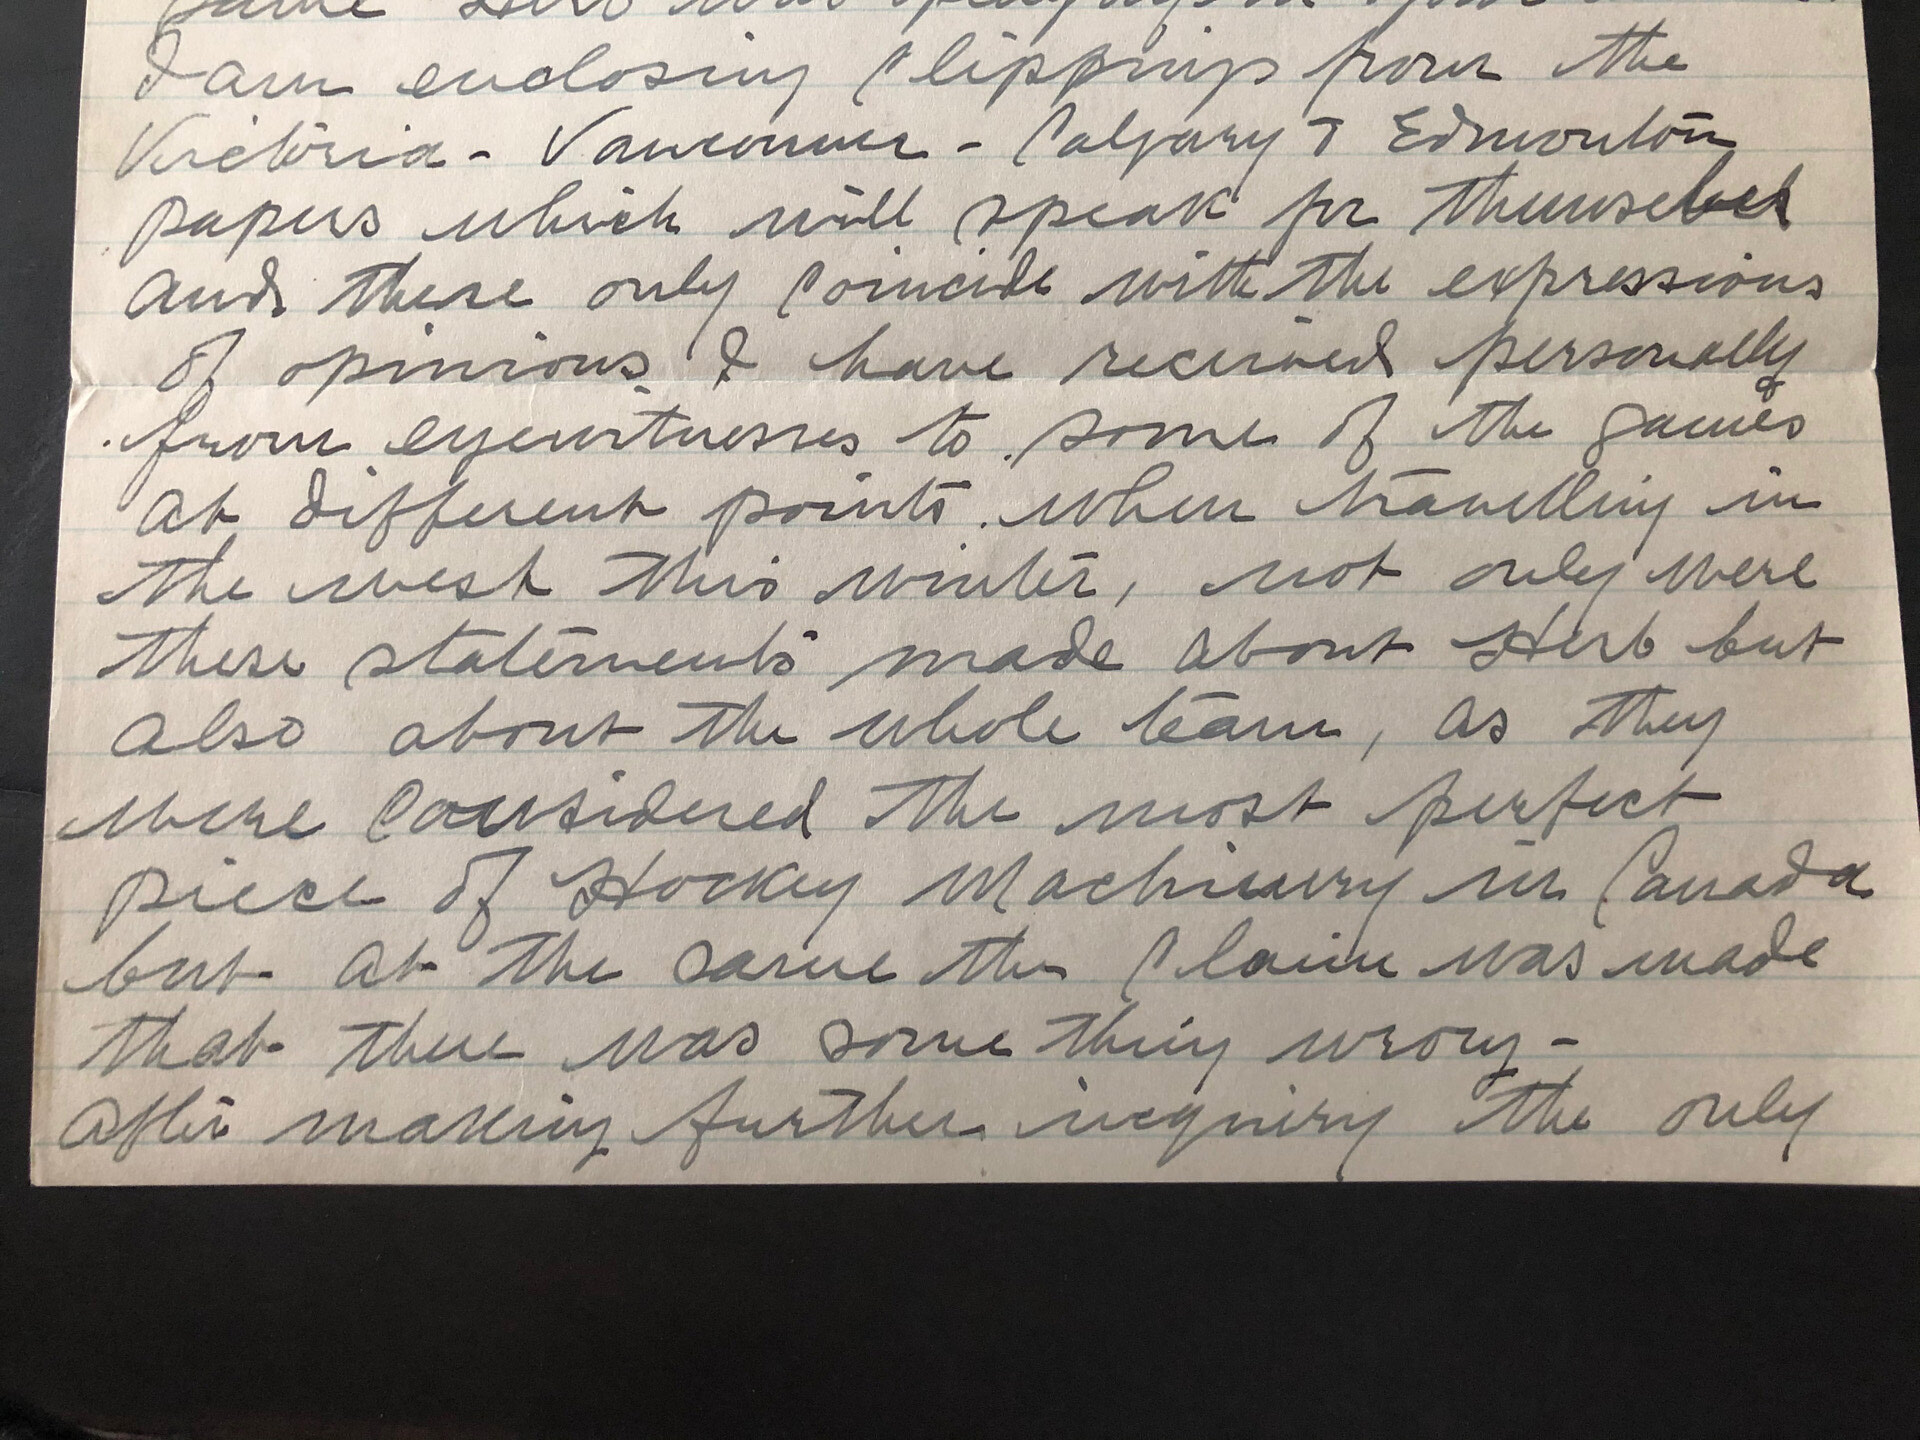 same Herb was
I am enclosing Clippings from the
Victoria - Vancouver - Calgary & Edmonton
papers which will speak for themselves
and these only Coincide with the expressions
of opinions I have received personally
from eyewitnesses to some of the games
at different points when travelling in
the west this winter, not only were
these statements made about Herb but
also about the whole team, as they
were Considered the most perfect
piece of Hockey Machinery in Canada
but at the same the Claim was made
that there was some thing wrong -
After making further inquiry the only